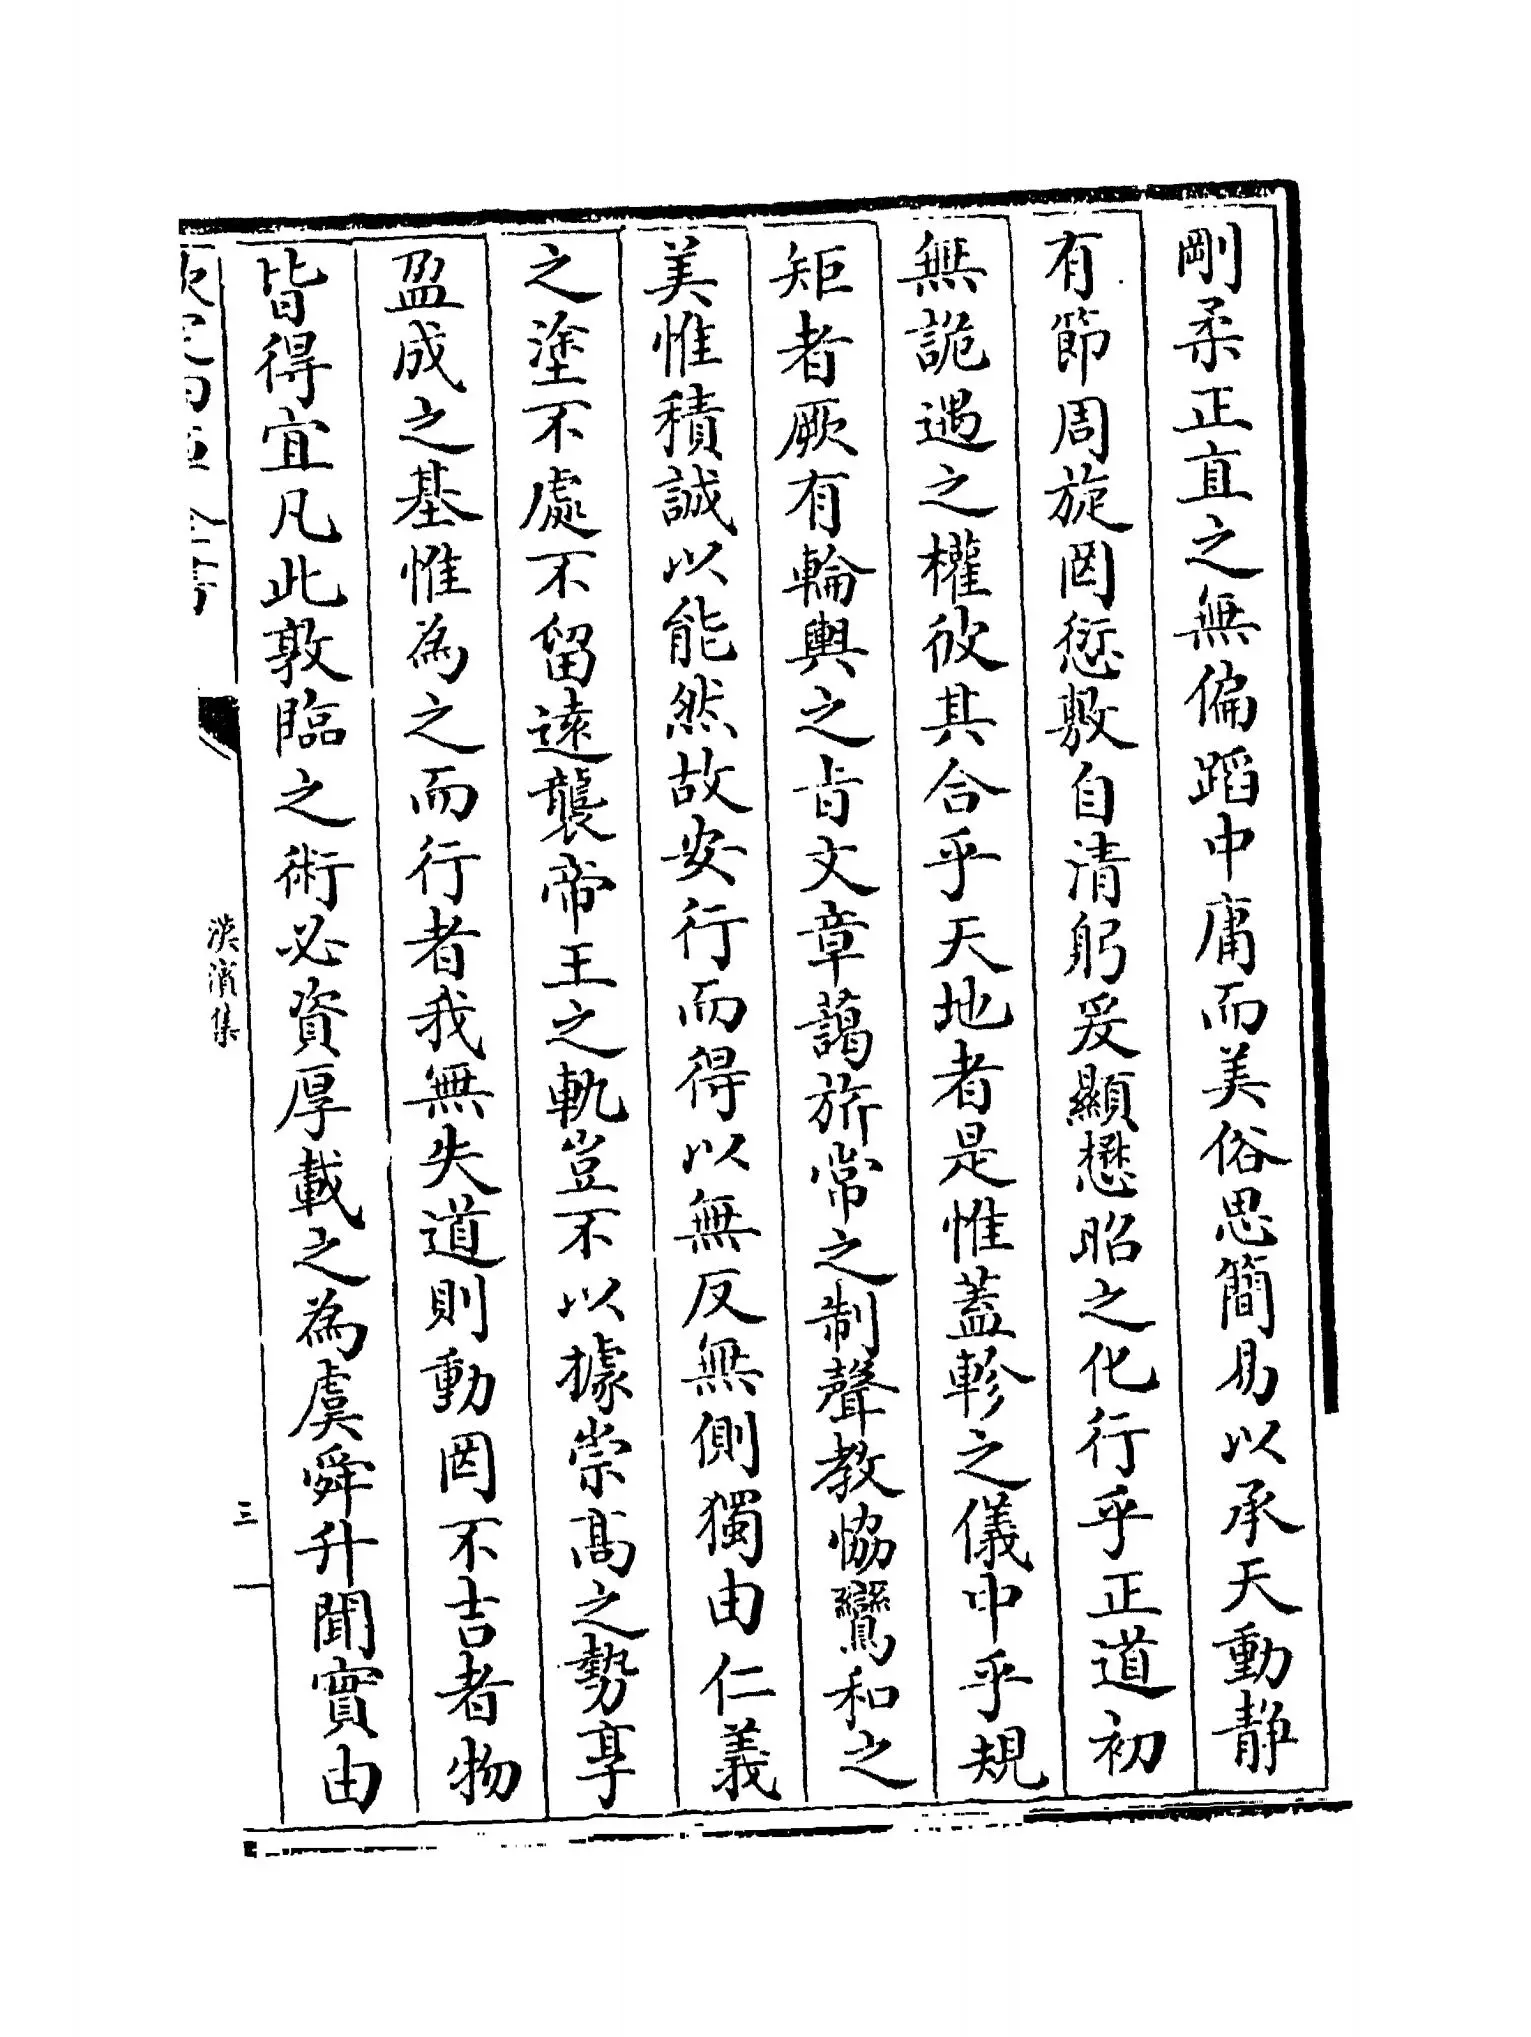 剛柔正直之無偏蹈中庸而美俗思簡易以承天動靜
有節周旋罔愆敷自清躬爰顯懋昭之化行乎正道初
無詭遇之權彼其合乎天地者是惟蓋軫之儀中乎規
矩者厥有輪輿之㫖文章藹旂常之制聲教恊鸞和之
美惟積誠以能然故安行而得以無反無側獨由仁義
之塗不處不留遠襲帝王之軌豈不以據崇髙之勢享
盈成之基惟為之而行者我無失道則動罔不吉者物
皆得宜凡此敦臨之術必資厚載之為虞舜升聞實由
欽定四庫全書
漢濱集
三